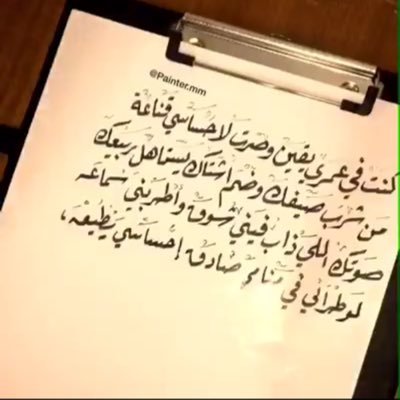 @Painter.mm
كنت في عمري يقين وصرت لاحساسي قناعة
من شرب صيفك وضم اشتاك يستاهل ربيعك
صوتك اللي ذاب فيني شوق وأطربني سماعه
لو طرالي في منامي صادق إحساسي يطيعك،